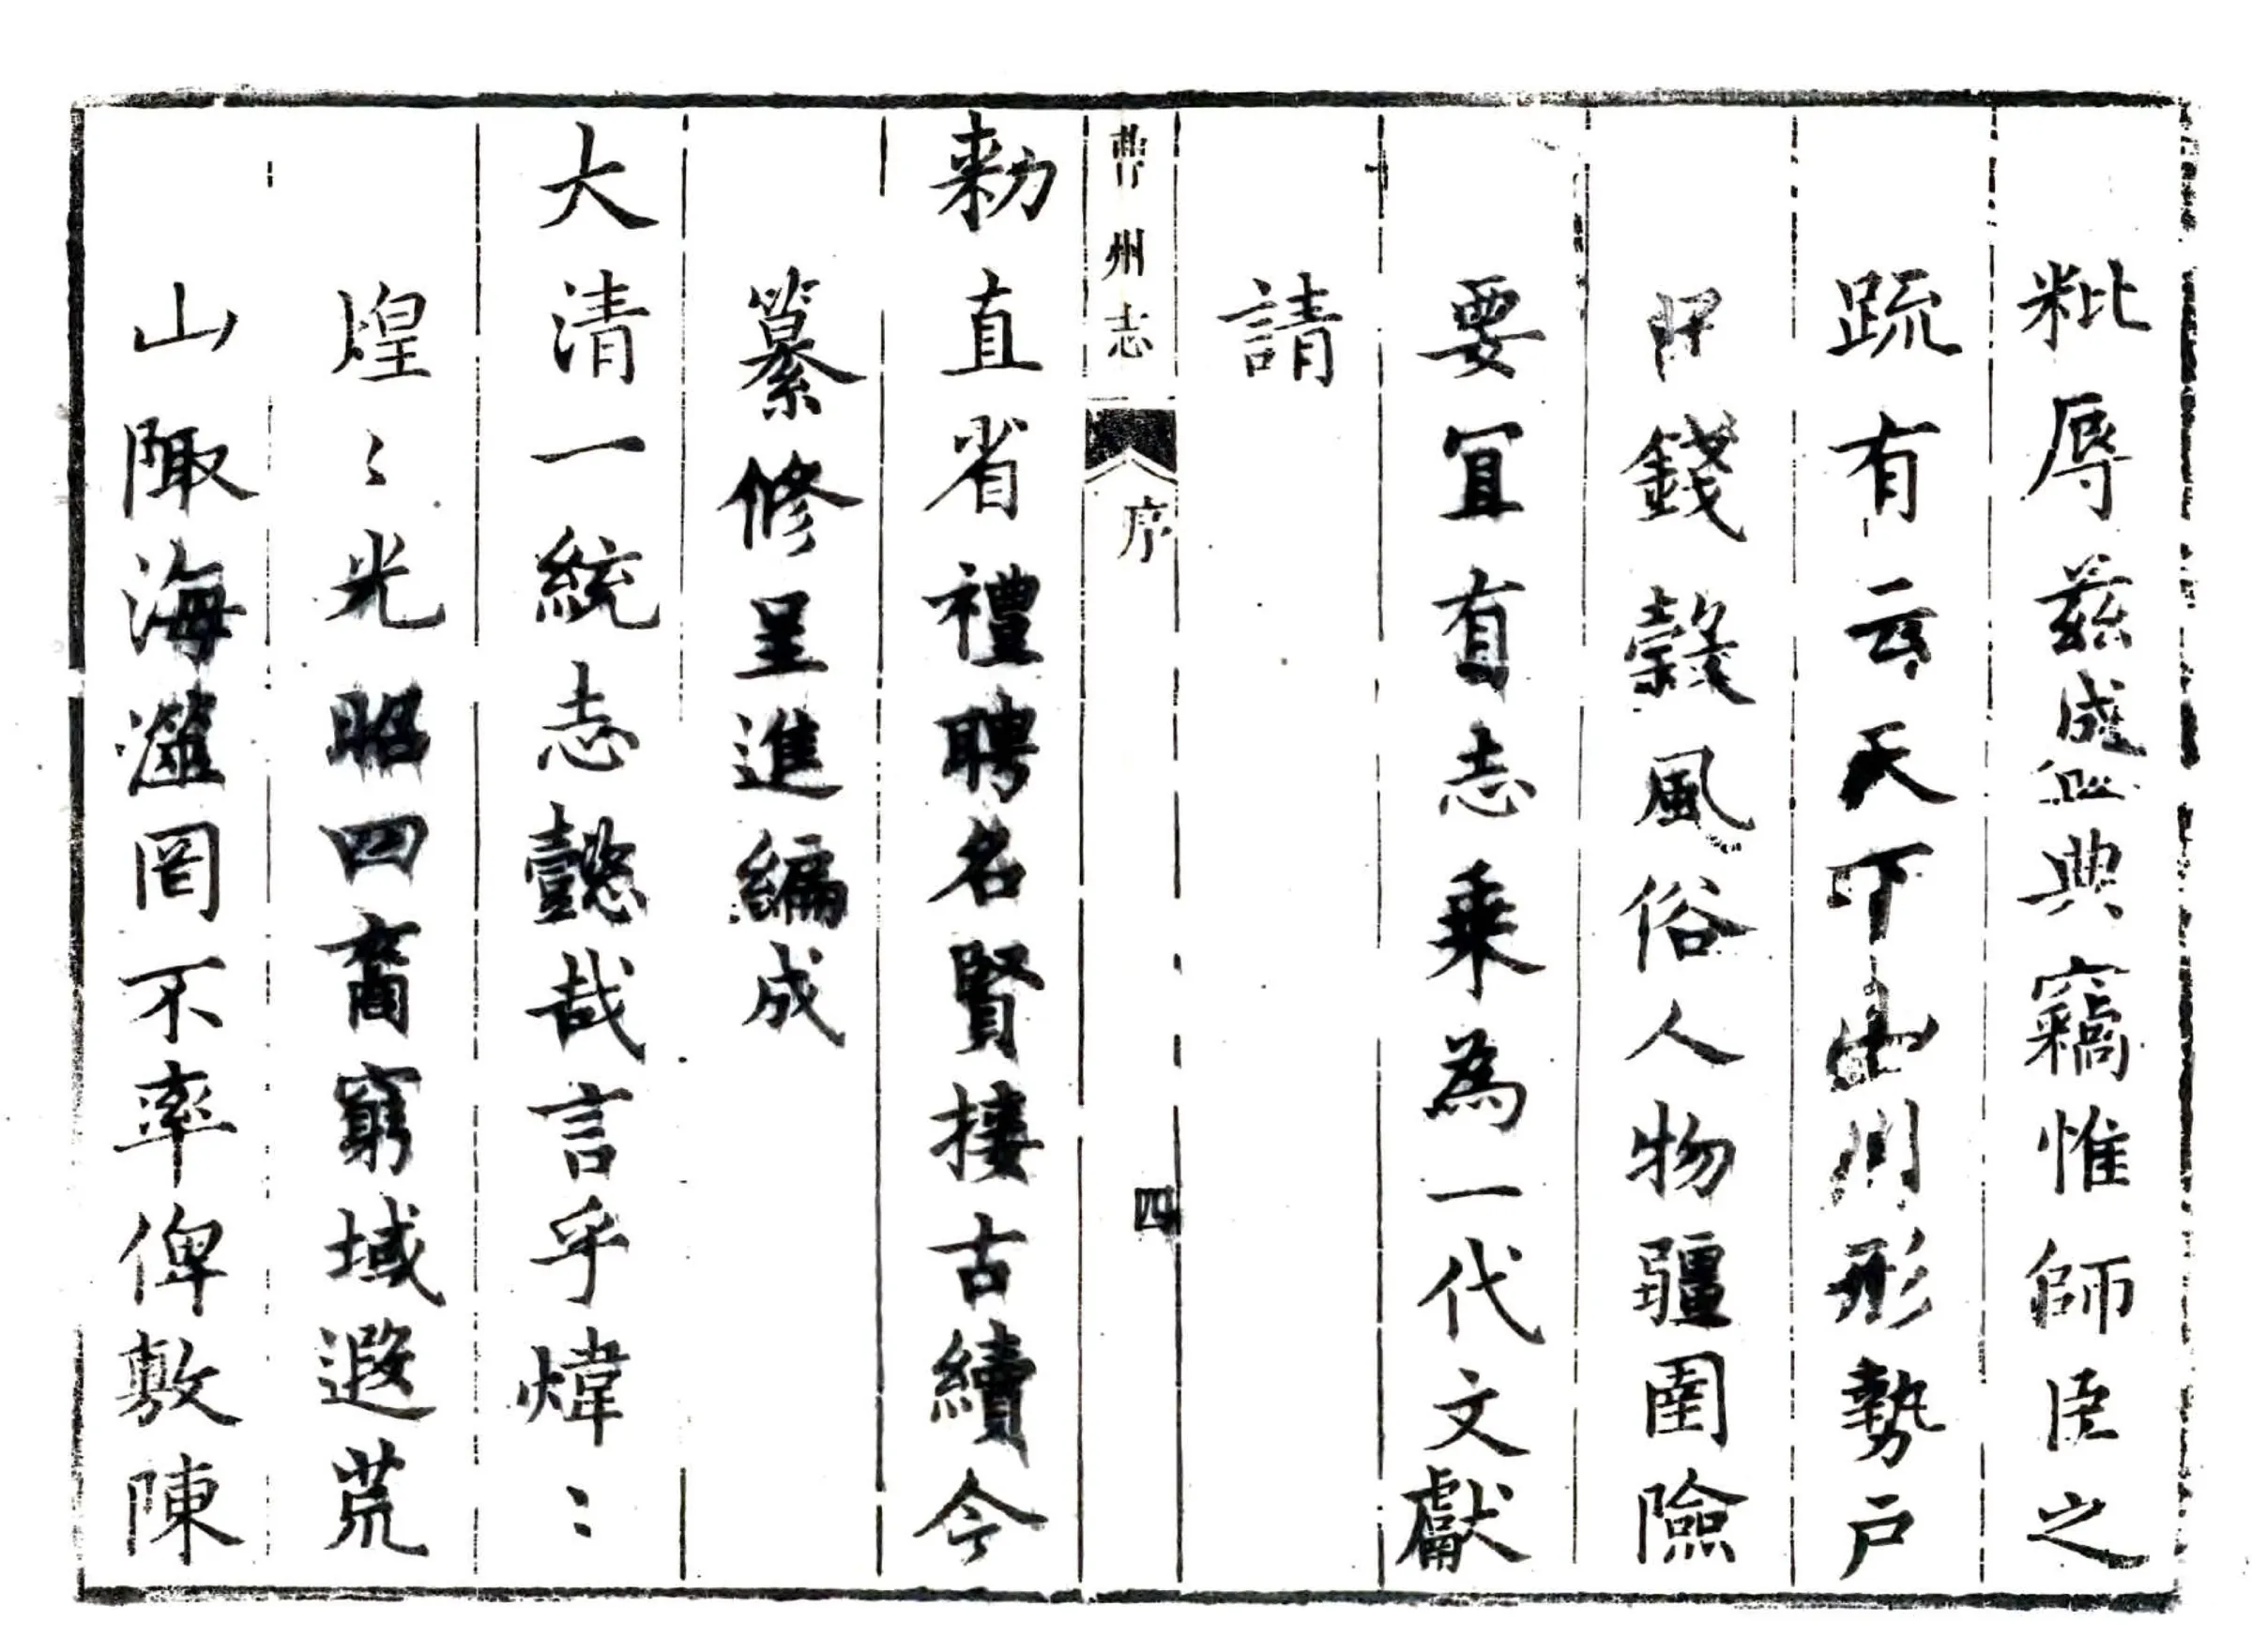 粃辱茲盛典竊惟師臣之
疏有云天下山川形勢戶
口錢穀風俗人物疆圉險
要宜有志乘為一代文獻
請
曹州志 序 四
勅直省禮聘名賢摟古續今
纂修呈進編成
大清一統志懿哉言乎煒〻
煌〻光昭四裔窮域遐荒
山陬海澨罔不率俾敷陳